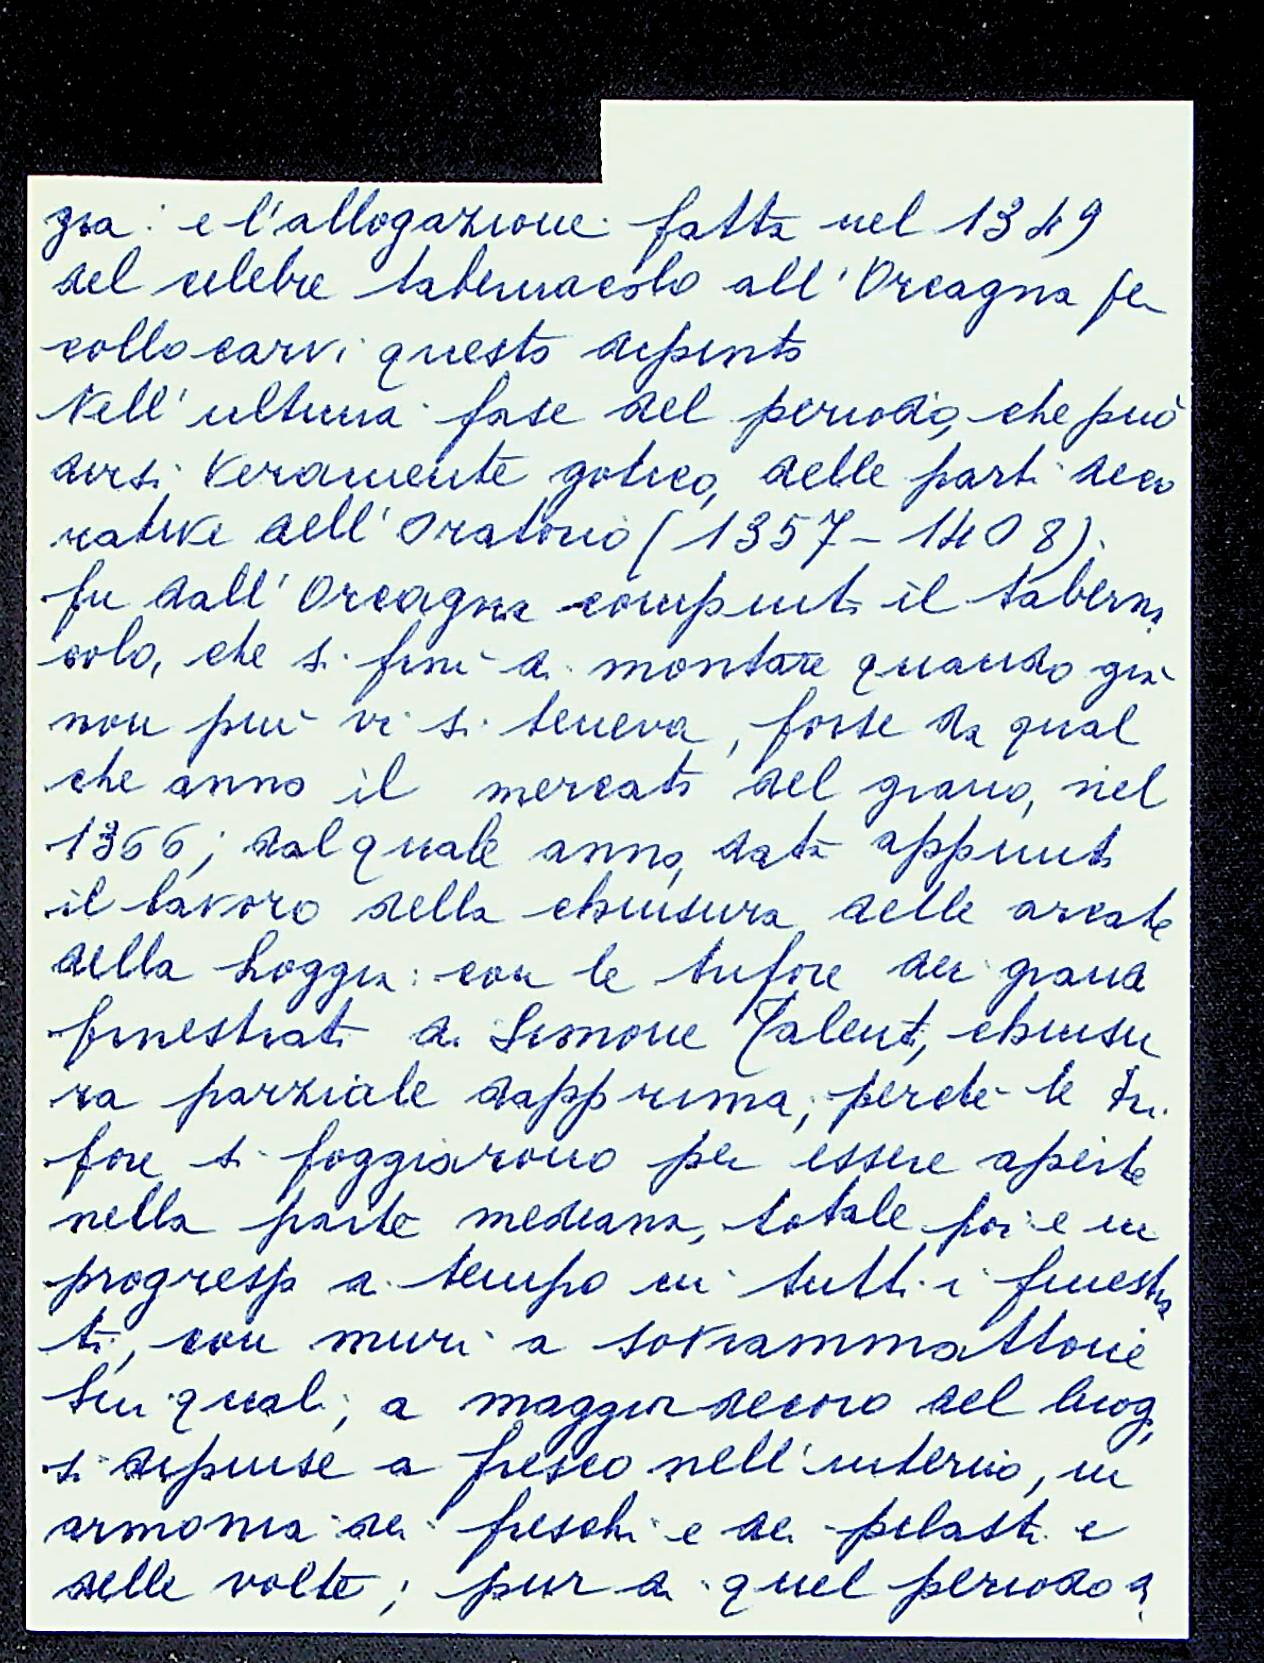 zia: e l'allogazione fatta nel 1349
del celebre tabernacolo all'Orcagna per
collocarvi questo dipinto
Nell'ultima fase del periodo, che può
dirsi veramente gotico, delle parti deco
rative dell'Oratorio (1357-1408).
fu dall'Orcagna compiuto il taberna
colo, che si finì di montare quando già
non più vi si teneva, forse da qual
che anno il mercato del grano, nel
1366; dal quale anno, data appunto
il lavoro della chiusura delle arcate
della Loggia: con le trifore dei grandi
finestrati di Simone Talenti, chiusu
ra parziale dapprima, perchè le tri
fore si foggiarono per essere aperte
nella parte mediana, totale poi e in
progresso di tempo in tutti i finestra
ti, con muri a soprammattone
sui quali, a maggior decoro del luogo,
si dipinse a fresco nell'interno, in
armonia dei freschi e dei pilastri e
delle volte; pur di quel periodo